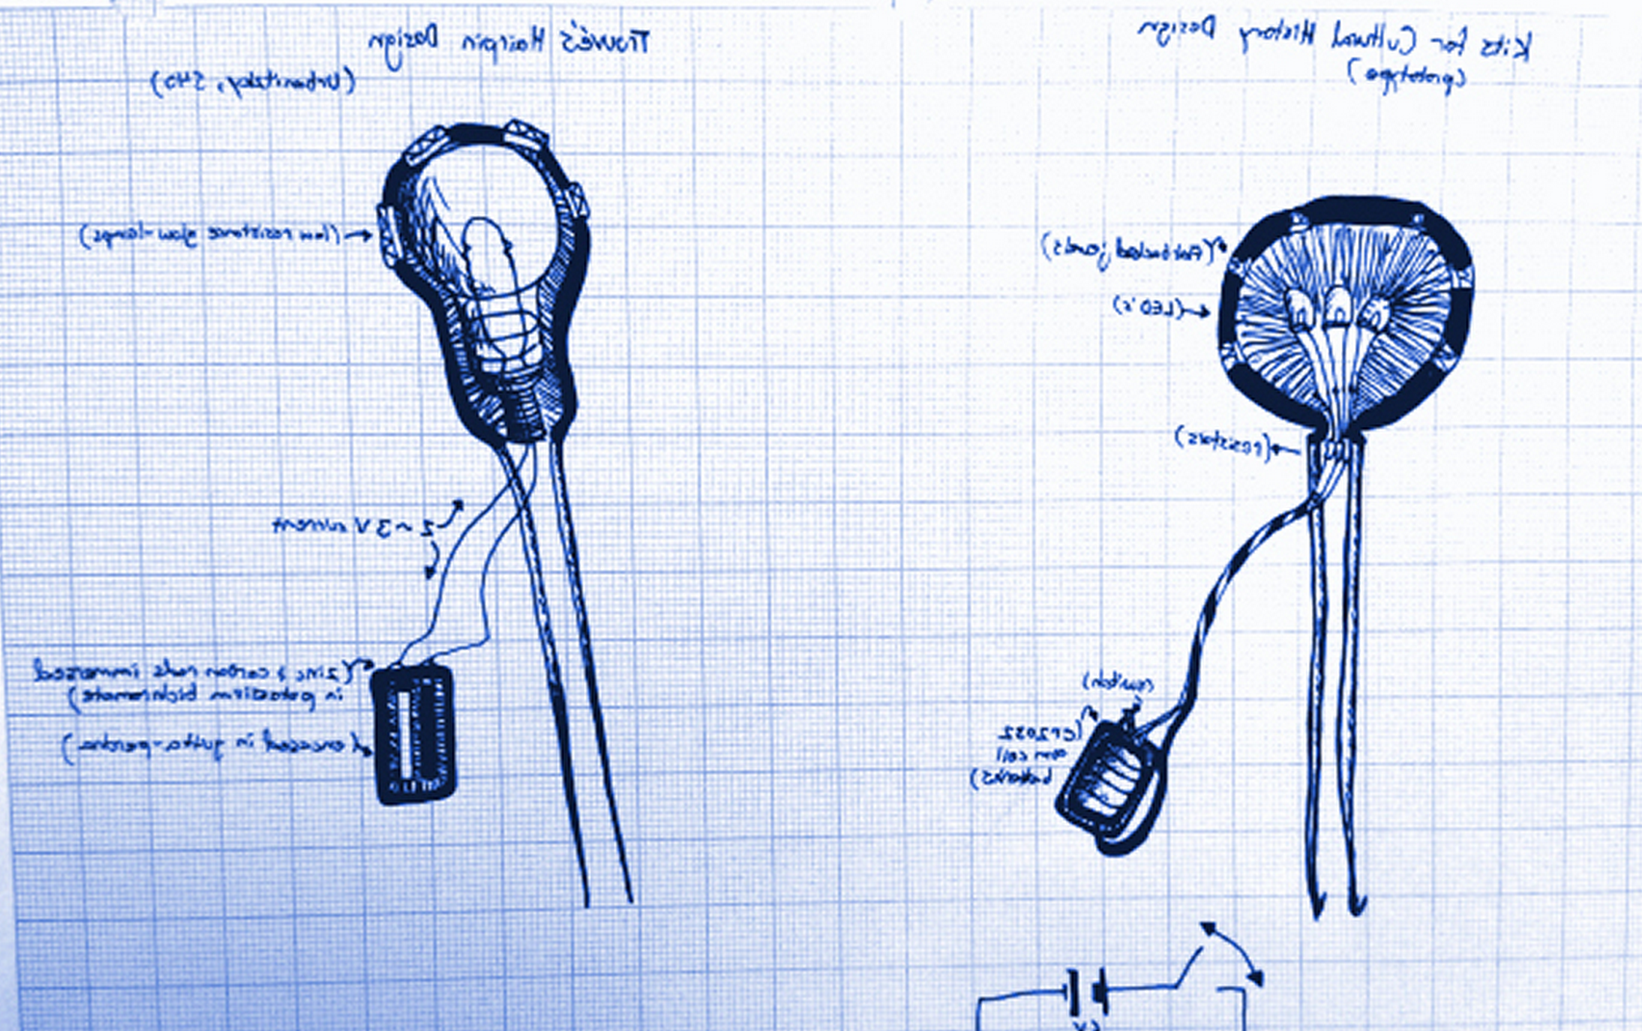 Trouvé's Hairpin Design
(Urbanitzky, 540)
(low resistance glow-lamps)
2~3 V current
(zinc & carbon rods immersed
in potassium bichromate)
(encased in gutta-percha)
Kits for Cultural History Design
(prototype)
(flatbacked jewels)
(LED's)
(resistors)
(switch)
(CR2032
coin cell
batteries)
6V